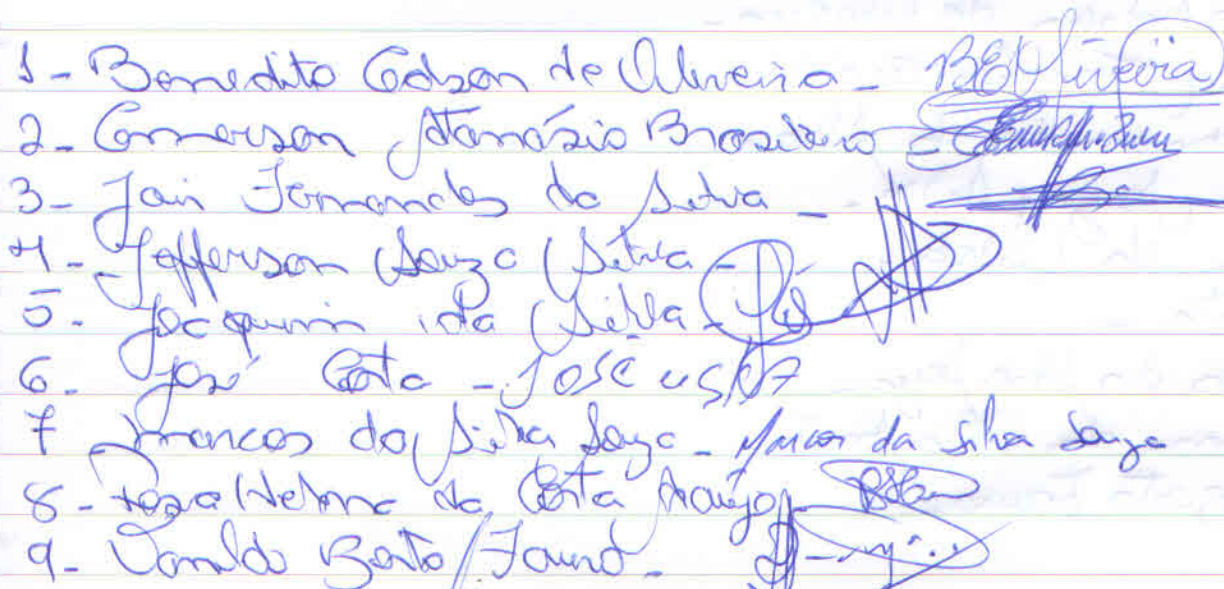 1- Benedito Edson de Oliveira - BEOliveira
2- Emerson Atanásio Brasileiro -
3- Jair Fernandes da Silva -
4- Jefferson Souza Silva -
5- Joaquim da Silva -
6- José Costa - JOSÉ
7 Marcos da Silva Souza - Marcos da Silva Souza
8- Rosa Helena da Costa Araújo
9- Bento